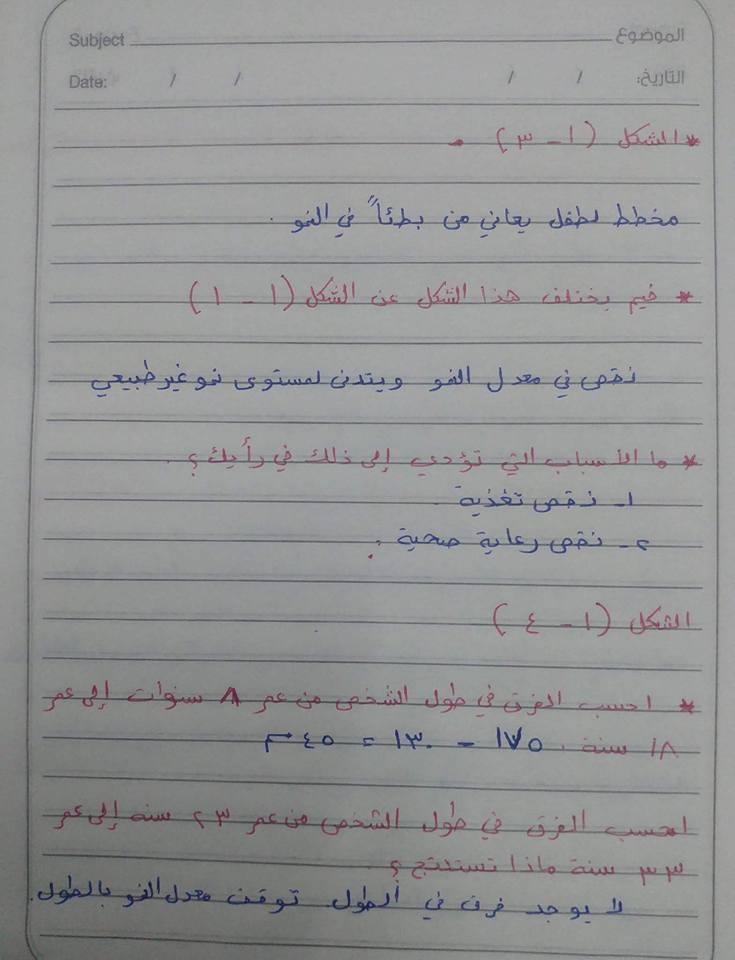 Subject الموضوع
Date: / / / / التاريخ:
* الشكل (١ - ٣)
مخطط لطفل يعاني من بطئاً في النمو .
* فيم يختلف هذا الشكل عن الشكل (١ - ١)
نقص في معدل النمو ويتدنى لمستوى نمو غير طبيعي
* ما الأسباب التي تؤدي إلى ذلك في رأيك ؟ .
١- نقص تغذية .
٢- نقص رعاية صحية .
الشكل (١ - ٤)
* احسب الفرق في طول الشخص من عمر ٨ سنوات إلى عمر
١٨ سنة . ١٧٥ - ١٣٠ = ٤٥ سم
احسب الفرق في طول الشخص من عمر ٢٣ سنه إلى عمر
٣٣ سنة ماذا تستنتج ؟
لا يوجد فرق في الطول . توقف معدل النمو بالطول .